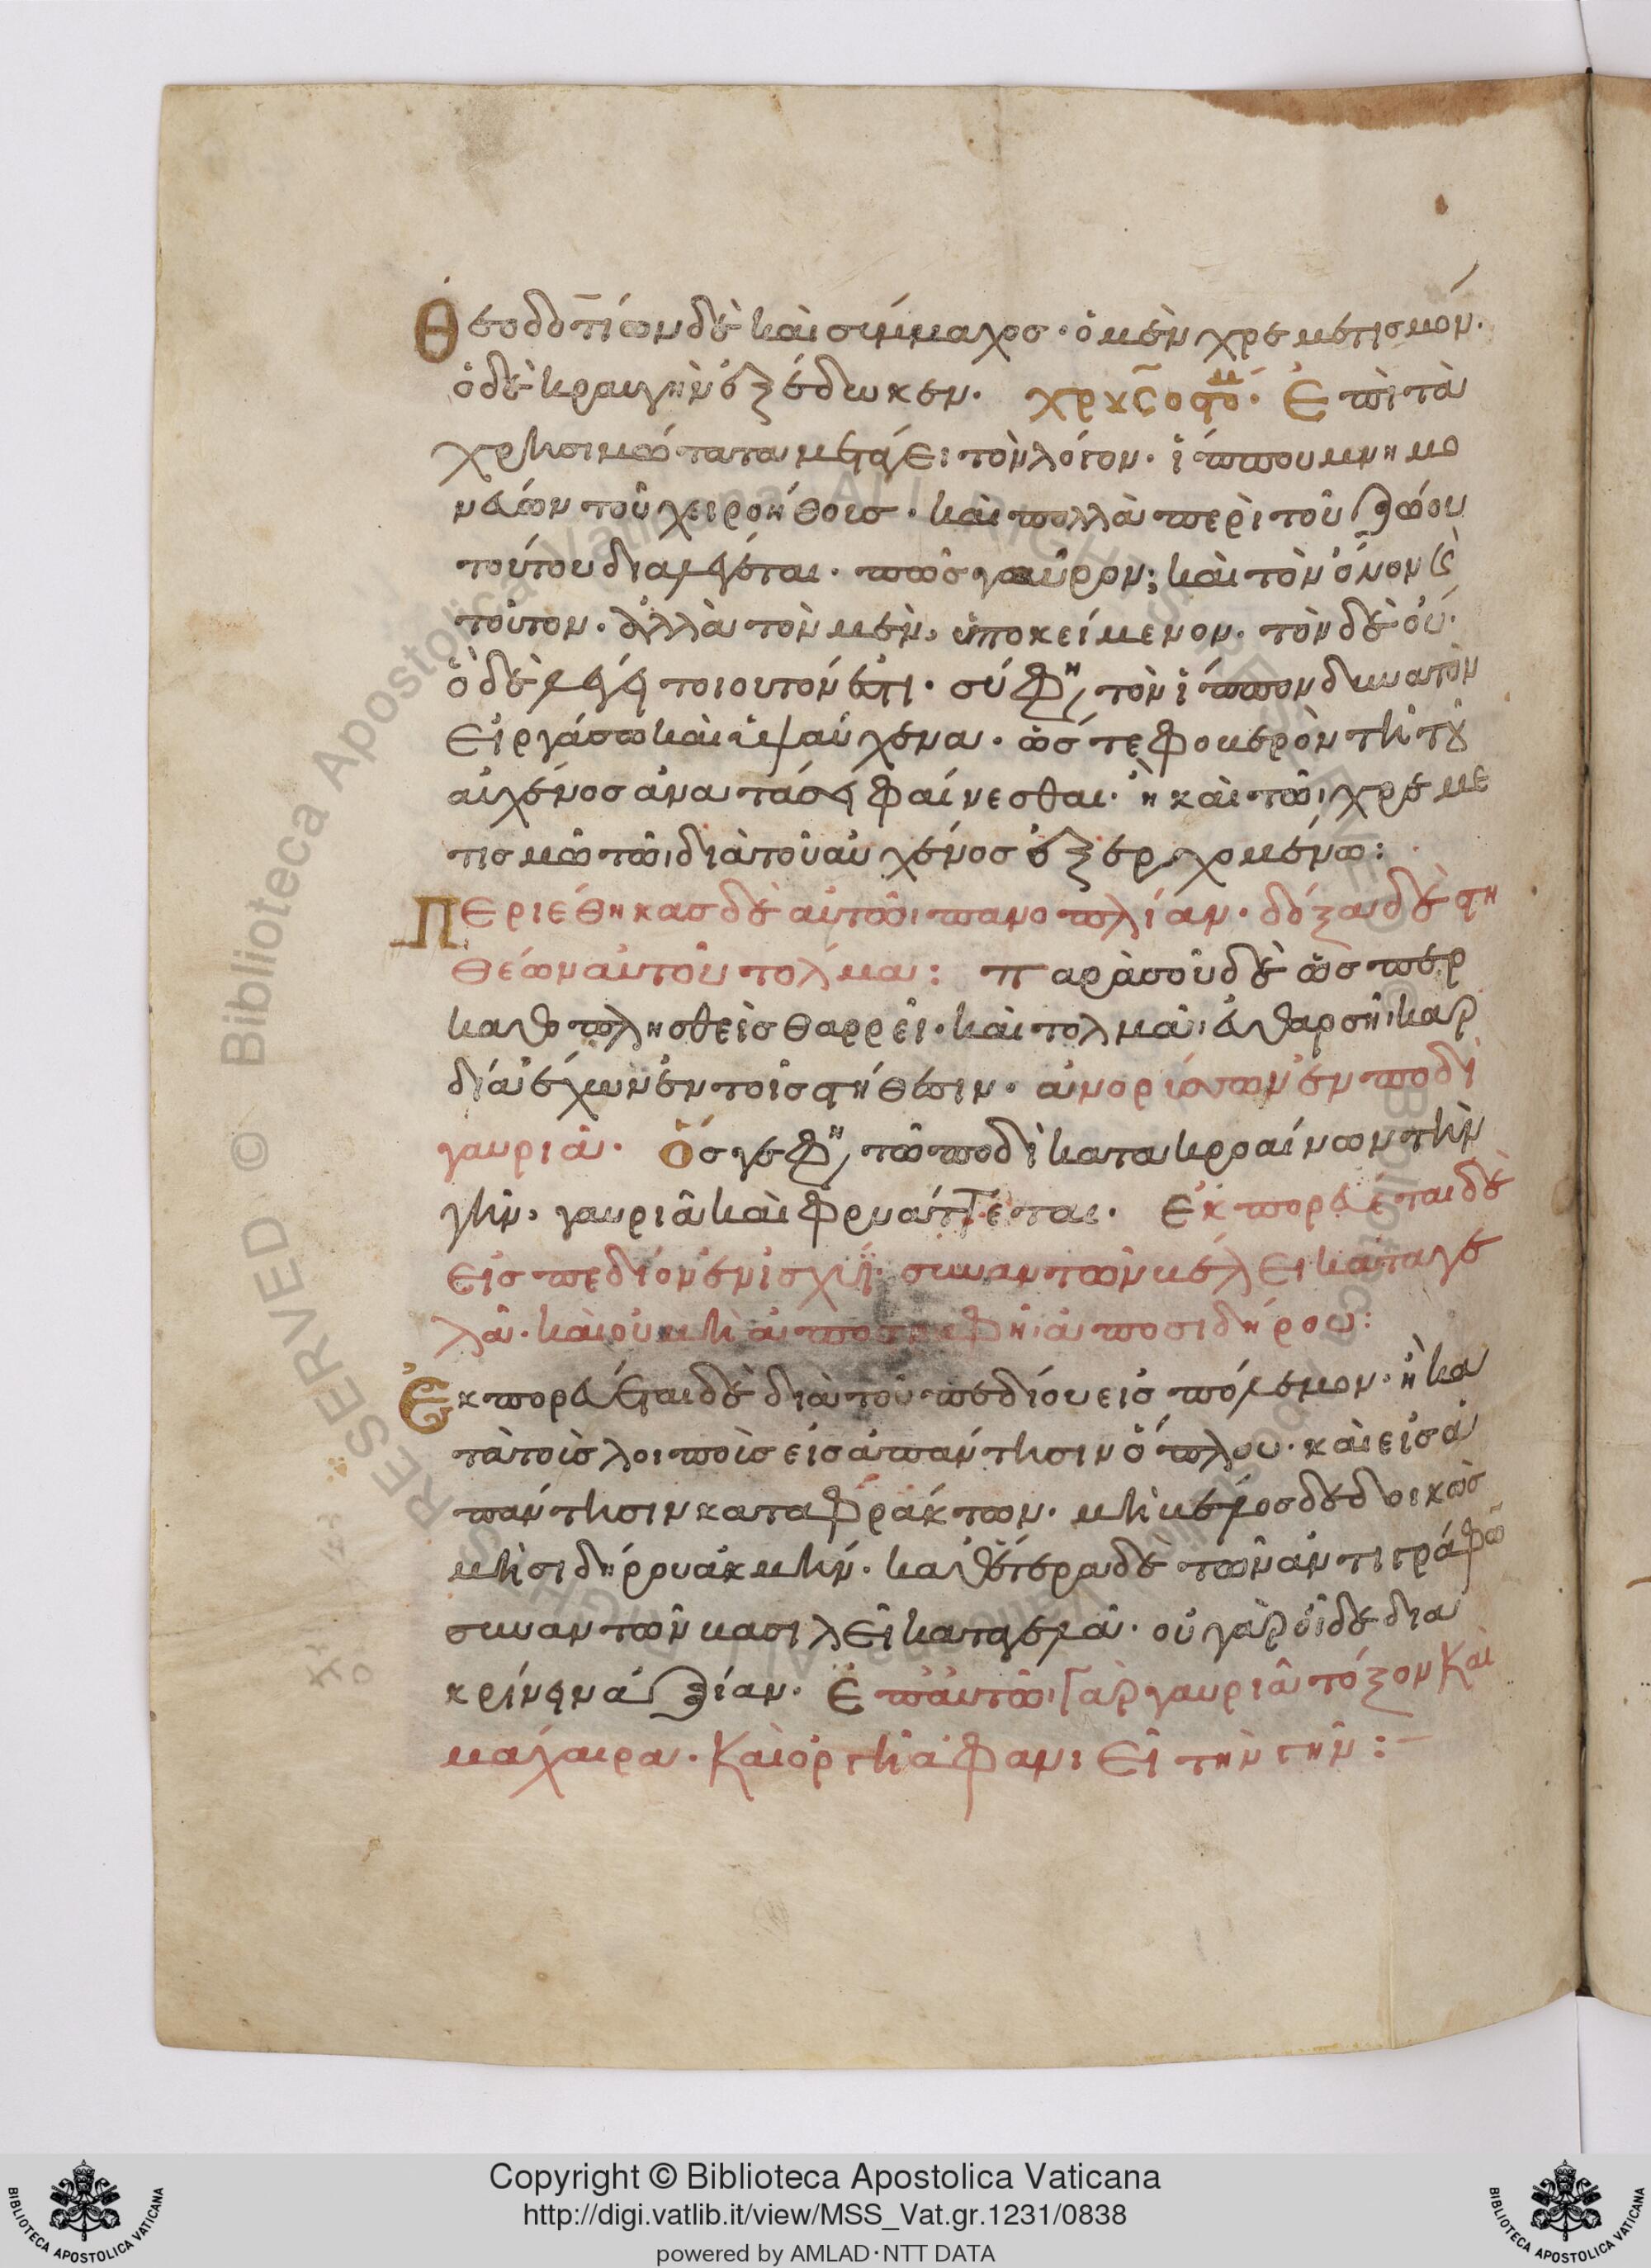 Θεοδοτίων δὲ καὶ σύμμαχος· ὁ μὲν χρεμετισμόν·
ὁ δὲ κραυγὴν ἐξέδωκεν· χρυσοστομ· Ἐπὶ τὰ
χρησιμώτατα μετάγει τὸν λόγον· ἵππου μνημο
νεύων τοῦ χειροήθους· καὶ πολλὰ περὶ τοῦ ζώου
τούτου διαλέγεται· πῶς γαῦρον; καὶ τὸν ὄνον
τοῦτον· ἀλλὰ τὸν μὲν, ὑποκείμενον· τὸν δὲ οὔ·
ὃ δὲ λέγει τοιοῦτόν ἐστι· σύ φη, τὸν ἵππον δυνατὸν
εἰργάσω καὶ ὑψαύχενα· ὥστε φοβερὸν τῆ τοῦ
αὐχένος ἀνατάσει φαίνεσθαι· ἢ καὶ τῶ χρεμε
τισμῶ τῶ διὰ τοῦ αὐχένος ἐξερχομένω:
Περιέθηκας δὲ αὐτῶ πανοπλίαν· δόξαν δὲ στη
θέων αὐτοῦ τόλμα: παρὰ σοῦ δὲ ὥσπερ
καθοπλισθεὶς θαρρεῖ· καὶ τολμᾶ, εὐθαρσῆ καρ
δίαν ἔχων ἐν τοῖς στήθεσιν· ἀνορύσσων ἐν ποδὶ
γαυριᾶ· Ὅς γε φη, τῶ ποδὶ κατακροαίνων τὴν
γῆν, γαυριᾶ καὶ φρυάττεται· Ἐκπορεύεται δὲ
εἰς πεδίον ἐν ἰσχύϊ· συναντῶν βέλει καταγε
λᾶ· καὶ οὐ μὴ ἀποστραφῆ ἀπὸ σιδήρου:
Ἐκπορεύεται δὲ διὰ τοῦ πεδίου εἰς πόλεμον· ἢ κα
τὰ τοῖς λοιποῖς εἰς ἀπάντησιν ὅπλου· καὶ εἰς ἀ
πάντησιν καταφράκτων· μὴ βέλος δεδοικὼς
μὴ σιδήρου ἀκμήν· καθ' ἕτερα δὲ τῶν ἀντιγράφω
συναντῶν βασιλεῖ καταγελᾶ· οὐ γὰρ οἶδε δια
κρίνειν ἀξίαν· Ἐπ' αὐτῶ γὰρ γαυριᾶ τόξον καὶ
μάχαιρα· Καὶ ὀργῆ ἀφανιεῖ τὴν γῆν:
Copyright © Biblioteca Apostolica Vaticana
http://digi.vatlib.it/view/MSS_Vat.gr.1231/0838
powered by AMLAD·NTT DATA